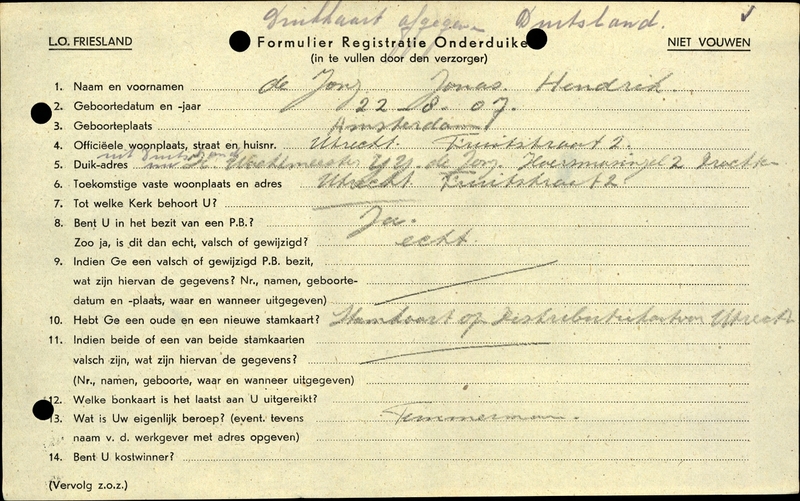 afgegeven Duitsland.
L.O. FRIESLAND
Formulier Registratie Onderduike
NIET VOUWEN
(in te vullen door den verzorger)
1. Naam en voornamen de Jong Jonas Hendrik.
2. Geboortedatum en -jaar 22-8-07.
3. Geboorteplaats Amsterdam
4. Officiëele woonplaats, straat en huisnr. Utrecht. Fruitstraat 2.
uit Duitschland
5. Duik-adres de Jong 2
6. Toekomstige vaste woonplaats en adres Utrecht Fruitstraat 2.
7. Tot welke Kerk behoort U?
8. Bent U in het bezit van een P.B.? Ja.
Zoo ja, is dit dan echt, valsch of gewijzigd? echt.
9. Indien Ge een valsch of gewijzigd P.B. bezit,
wat zijn hiervan de gegevens? Nr., namen, geboorte-
datum en -plaats, waar en wanneer uitgegeven)
10. Hebt Ge een oude en een nieuwe stamkaart? Stamkaart op Distributiekantoor Utrecht
11. Indien beide of een van beide stamkaarten
valsch zijn, wat zijn hiervan de gegevens?
(Nr., namen, geboorte, waar en wanneer uitgegeven)
12. Welke bonkaart is het laatst aan U uitgereikt?
13. Wat is Uw eigenlijk beroep? (event. tevens Timmerman.
naam v. d. werkgever met adres opgeven)
14. Bent U kostwinner?
(Vervolg z.o.z.)